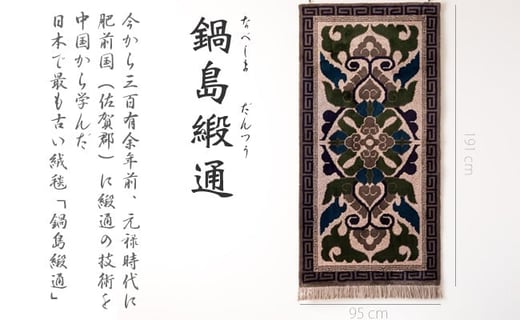 なべしま だんつう
鍋島緞通
今から三百有余年前、元禄時代に
肥前国（佐賀郡）に緞通の技術を
中国から学んだ
日本で最も古い絨毯「鍋島緞通」
191 cm
95 cm